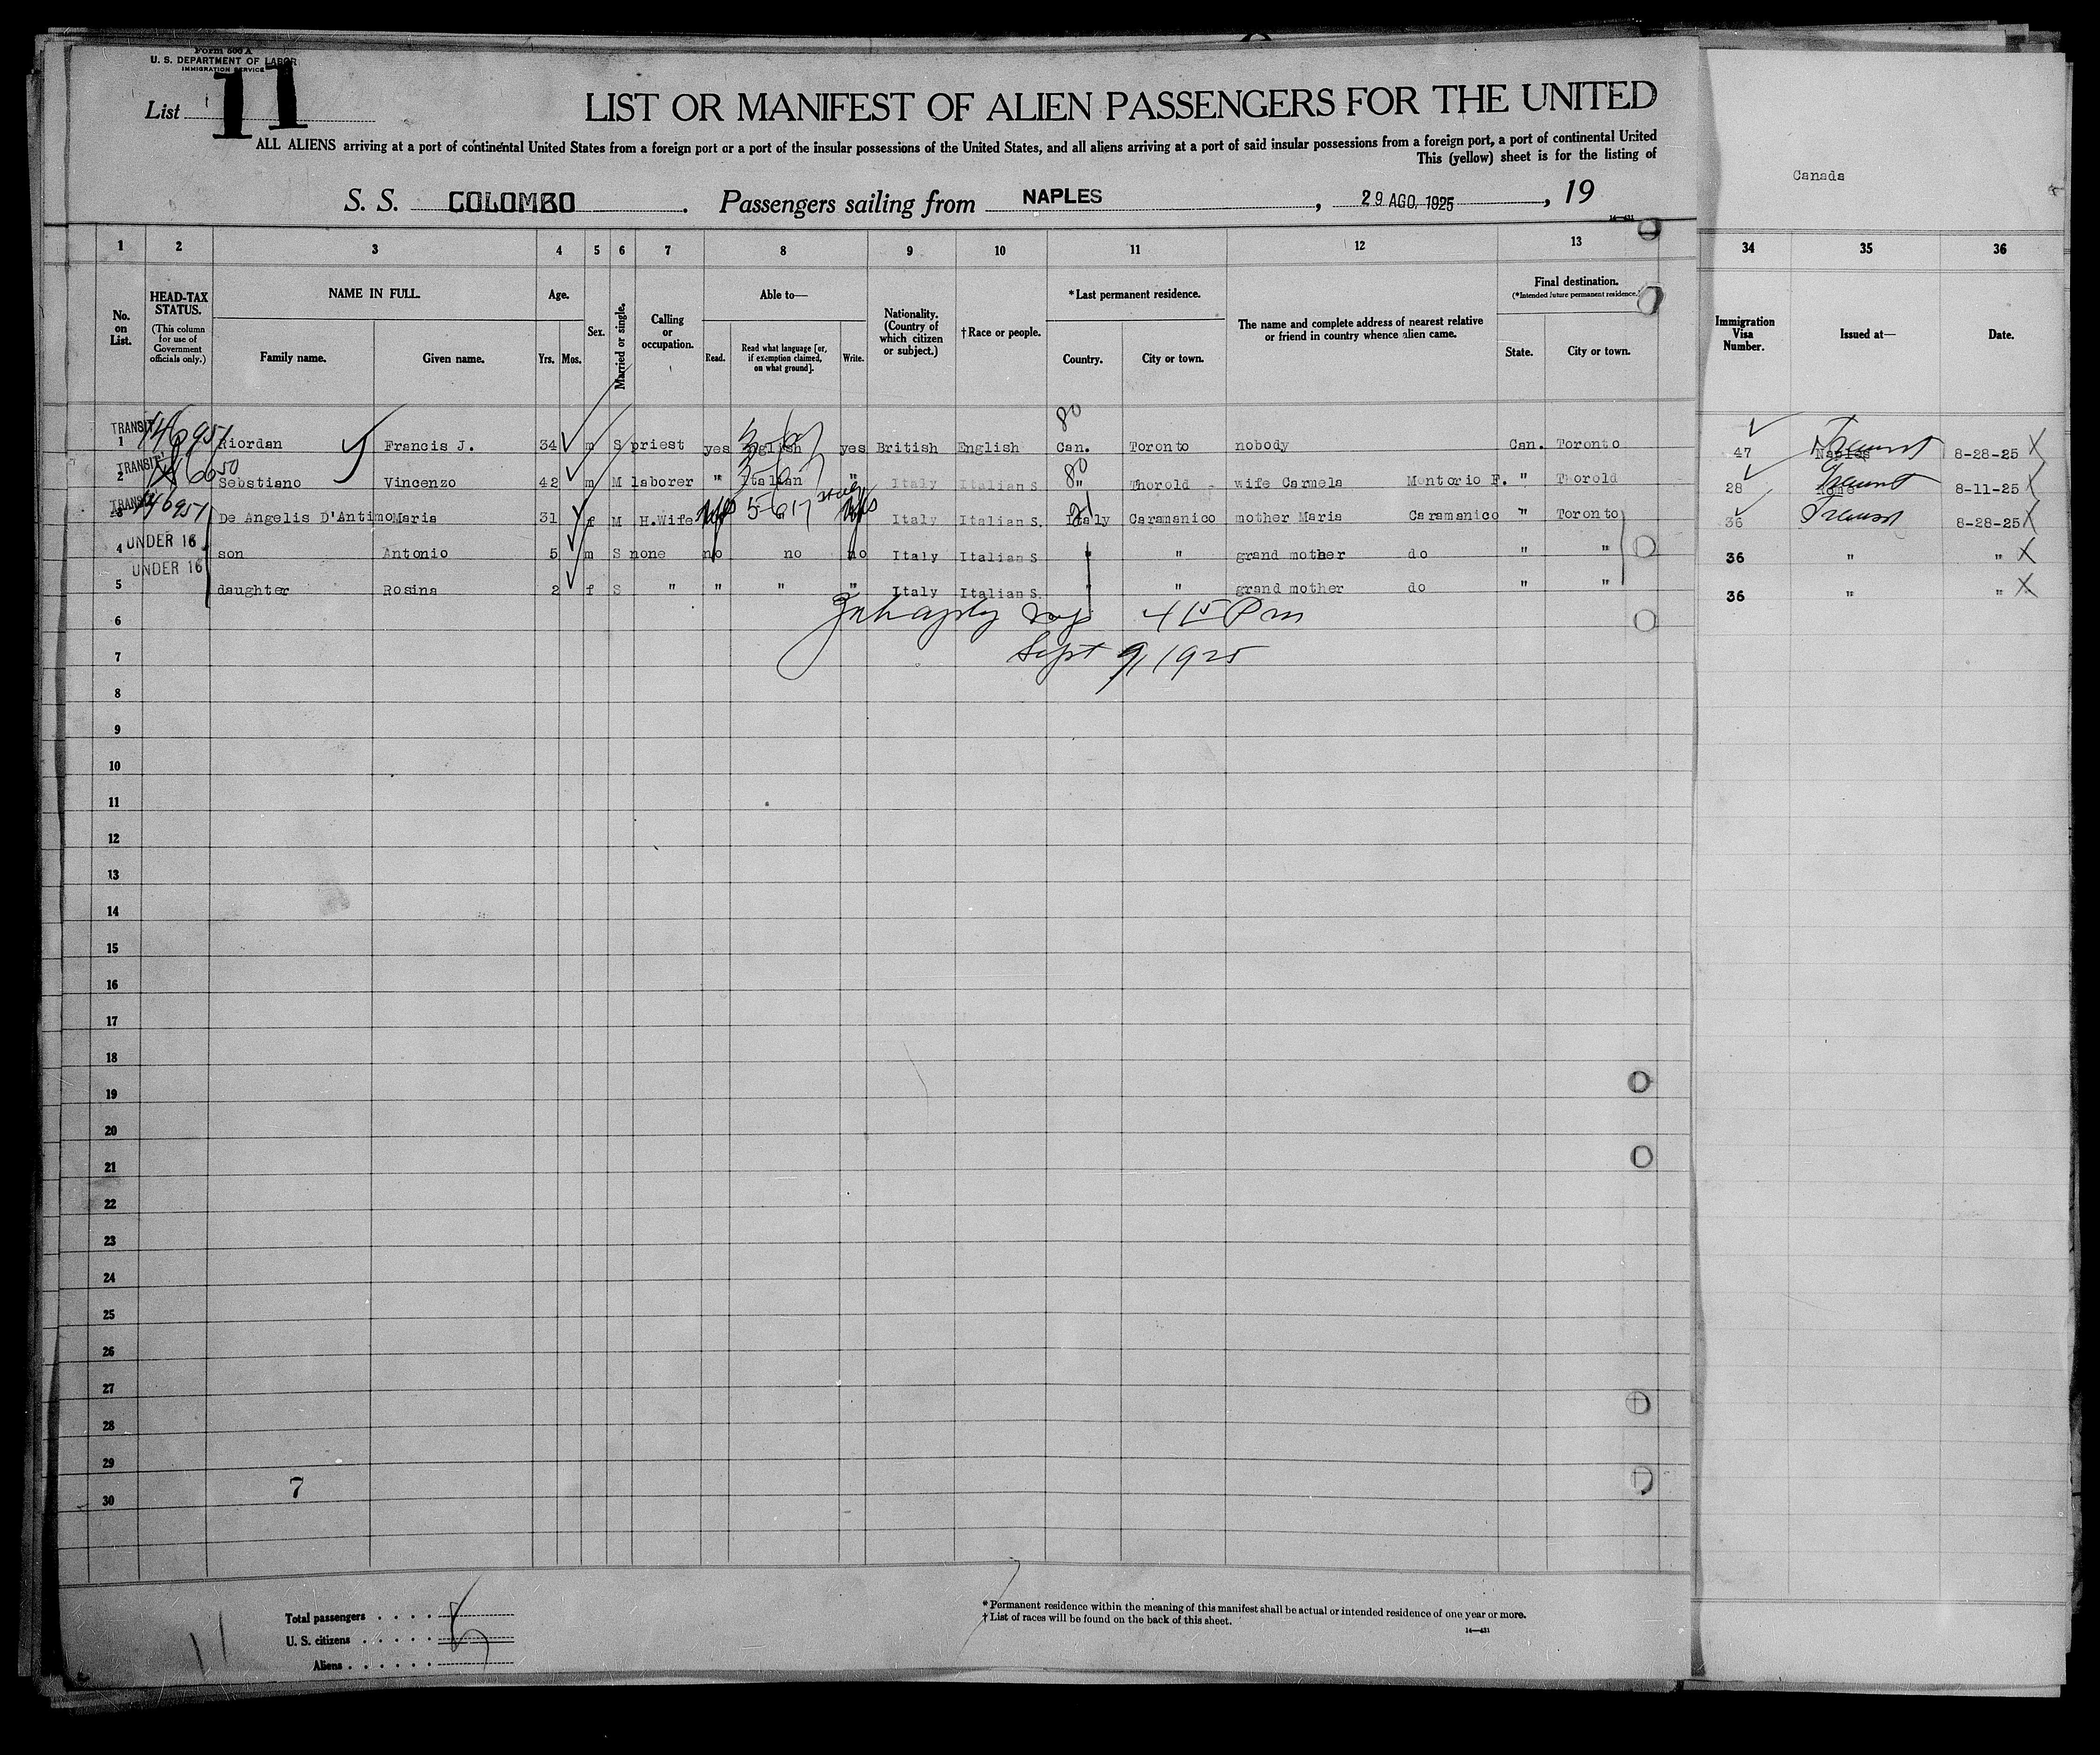 Form 500 A
U. S. DEPARTMENT OF LABOR
IMMIGRATION SERVICE
List 11
LIST OR MANIFEST OF ALIEN PASSENGERS FOR THE UNITED
ALL ALIENS arriving at a port of continental United States from a foreign port or a port of the insular possessions of the United States, and all aliens arriving at a port of said insular possessions from a foreign port, a port of continental United
This (yellow) sheet is for the listing of
Canada
S. S. COLOMBO. Passengers sailing from NAPLES, 29 AGO. 1925, 19
1 2 3 4 5 6 7 8 9 10 11 12 13 34 35 36
No. on List.
HEAD-TAX STATUS.
(This column for use of Government officials only.)
NAME IN FULL.
Family name. Given name.
Age.
Yrs. Mos.
Sex.
Married or single.
Calling or occupation.
Able to—
Read. Read what language [or, if exemption claimed, on what ground]. Write.
Nationality. (Country of which citizen or subject.)
†Race or people.
*Last permanent residence.
Country. City or town.
The name and complete address of nearest relative or friend in country whence alien came.
Final destination.
(*Intended future permanent residence.)
State. City or town.
Immigration Visa Number.
Issued at—
Date.
1 TRANSIT Riordan Francis J. 34 m S priest yes English yes British English Can. Toronto nobody Can. Toronto 47 Naples Transit 8-28-25 X
2 TRANSIT Sebstiano Vincenzo 42 m M laborer " Italian " Italy Italian S " Thorold wife Carmela Montorio F. " Thorold 28 Rome Transit 8-11-25 X
3 TRANSIT De Angelis D'Antimo Maria 31 f M H.Wife Italy Italian S. Italy Caramanico mother Maria Caramanico " Toronto 36 Transit 8-28-25 X
4 UNDER 16 son Antonio 5 m S none no no no Italy Italian S " " grand mother do " " 36 " " X
5 UNDER 16 daughter Rosina 2 f S " " " " Italy Italian S. " " grand mother do " " 36 " " X
6 4 15 Pm
7 Sept 9, 1925
8
9
10
11
12
13
14
15
16
17
18
19
20
21
22
23
24
25
26
27
28
29
7
30
Total passengers
U. S. citizens
Aliens
5
11
* Permanent residence within the meaning of this manifest shall be actual or intended residence of one year or more.
† List of races will be found on the back of this sheet.
14—431